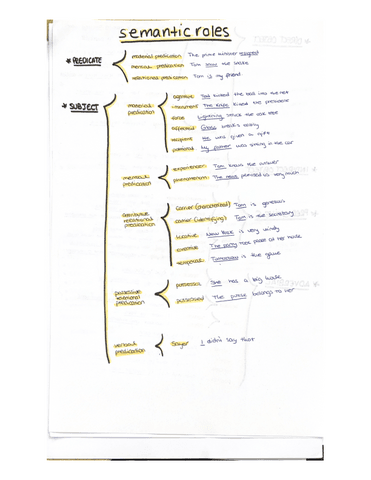 semantic roles
* PREDICATE
material predication The prime minister resigned
mental predication Tom knew the snake
relational predication Tom is my friend
* SUBJECT
material predication
agentive Tom the ball into the net
instrument The knife killed the prisoner
force Lightning struck the oak tree
affected Glass breaks easily
recipient He was given a gift
positioned My father was sitting in the car
mental predication
experiencer Tom knows the answer
phenomenon The news pleased us very much
attributive relational predication
carrier (characterized) Tom is generous
carrier (identifying) Tom is the secretary
locative New York is very windy
eventive The party took place at her house
temporal Tomorrow is the game
possessive relational predication
possessor She has a big house
possessed This purse belongs to her
verbal predication
Sayer I didn't say that